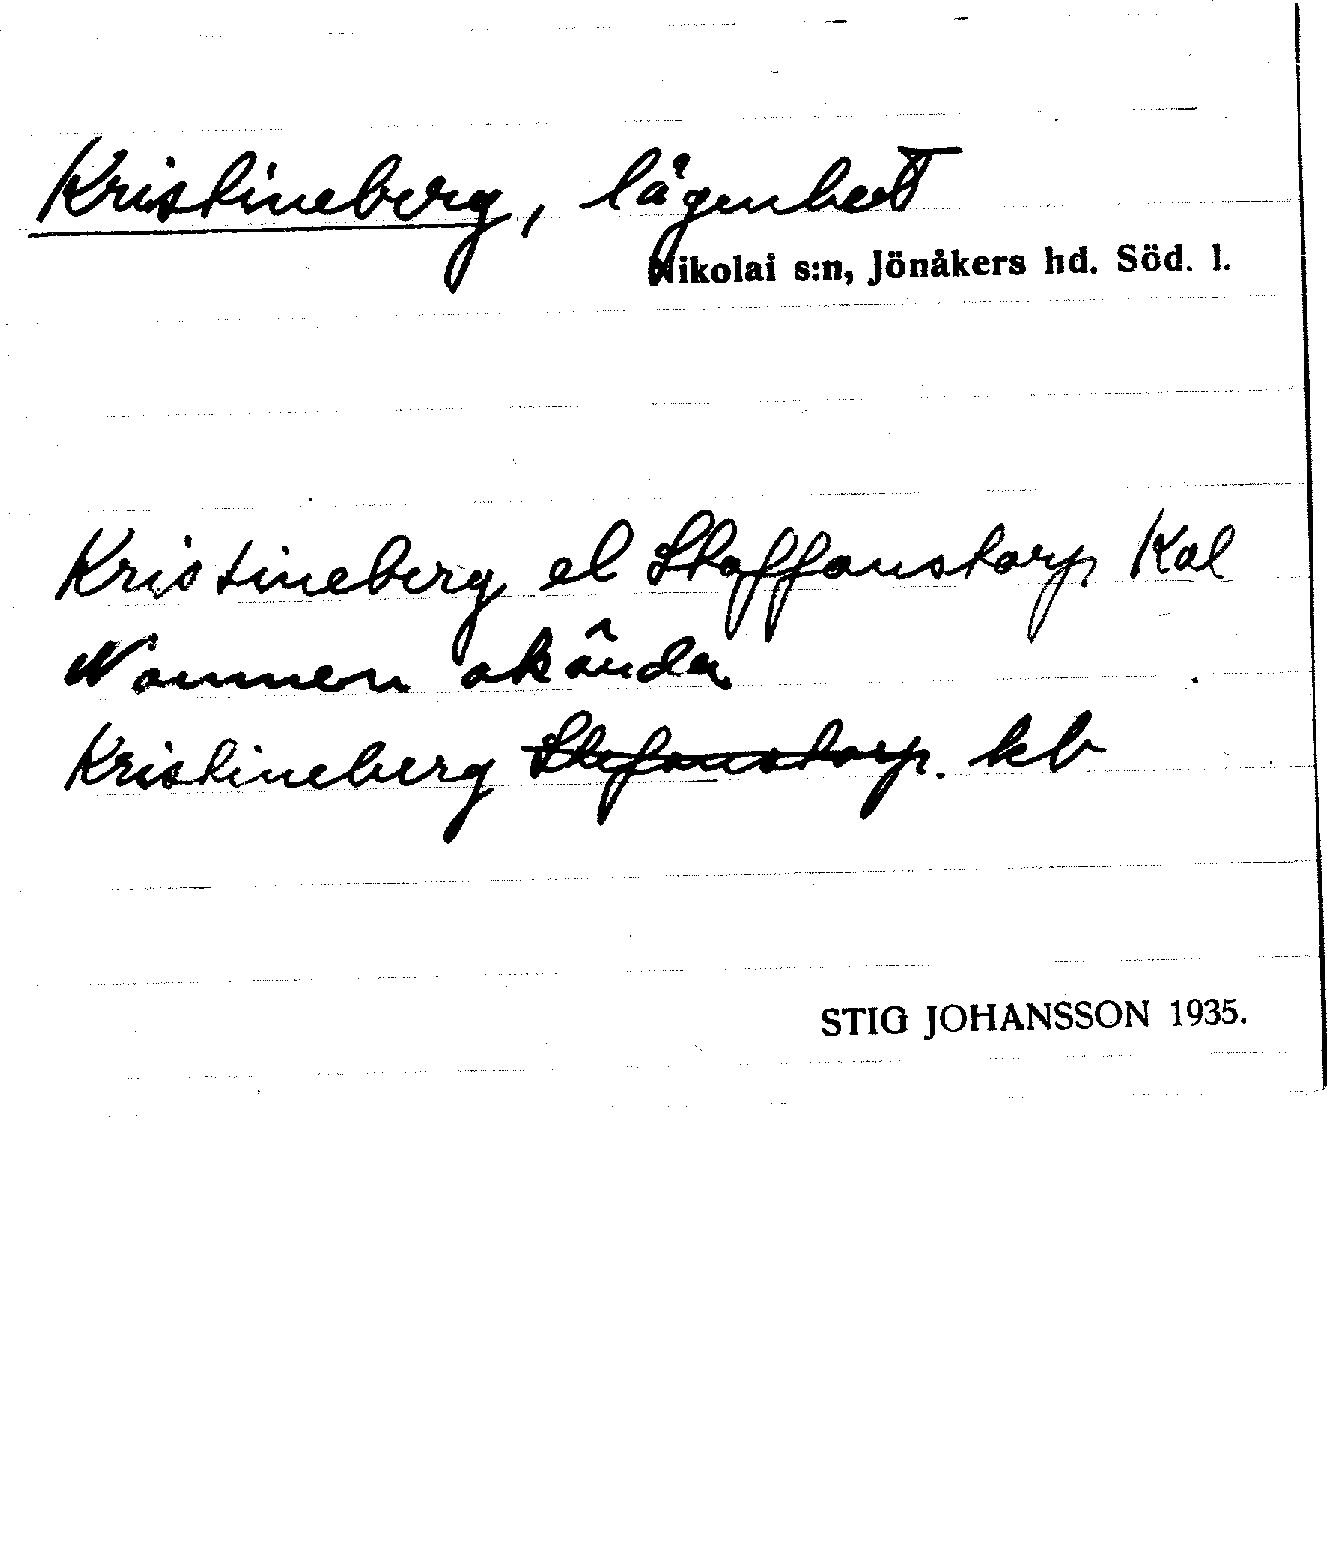 Kristineberg, lägenhet
Nikolai s:n, Jönåkers hd. Söd. l.
Kristineberg el Staffanstorp Kal
Namnen okända
Kristineberg Stefanstorp. kb
STIG JOHANSSON 1935.